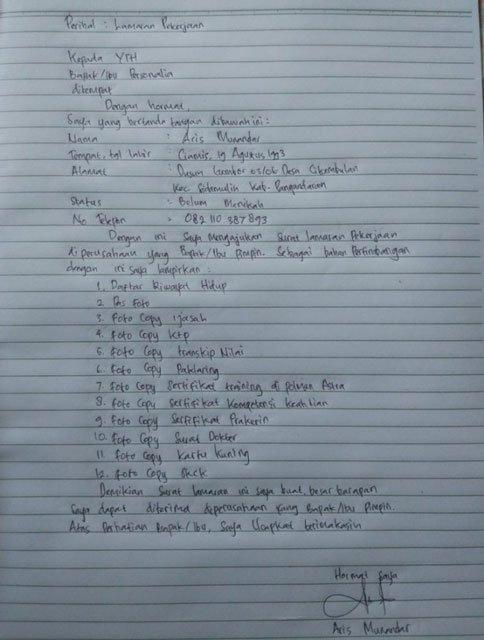 Perihal : Lamaran Pekerjaan
Kepada YTH
Bapak/Ibu Personalia
ditempat
Dengan hormat,
Saya yang bertanda tangan dibawah ini :
Nama : Aris Munandar
Tempat, tgl lahir : Ciamis, 19 Agustus 1993
Alamat : Dusun 05/06 Desa Cikembulan
Kec Sidamulih Kab. Pangandaran
Status : Belum Menikah
No Telepon : 082 110 387 893
Dengan ini saya mengajukan surat lamaran Pekerjaan
di perusahaan yang Bapak/Ibu Pimpin. Sebagai bahan Pertimbangan
dengan ini saya lampirkan :
1. Daftar Riwayat Hidup
2. Pas Foto
3. Foto Copy ijasah
4. Foto Copy Ktp
5. Foto Copy transkip Nilai
6. Foto Copy Paklaring
7. Foto Copy Sertifikat training di Polman Astra
8. Foto Copy Sertifikat Kompetensi keahlian
9. Foto Copy Sertifikat Prakerin
10. Foto Copy Surat Dokter
11. Foto Copy Kartu kuning
12. Foto Copy Skck
Demikian Surat lamaran ini saya buat, besar harapan
Saya dapat diterima diperusahaan yang Bapak/Ibu Pimpin.
Atas Perhatian Bapak/Ibu, Saya Ucapkan terimakasih
Hormat Saya
Aris Munandar